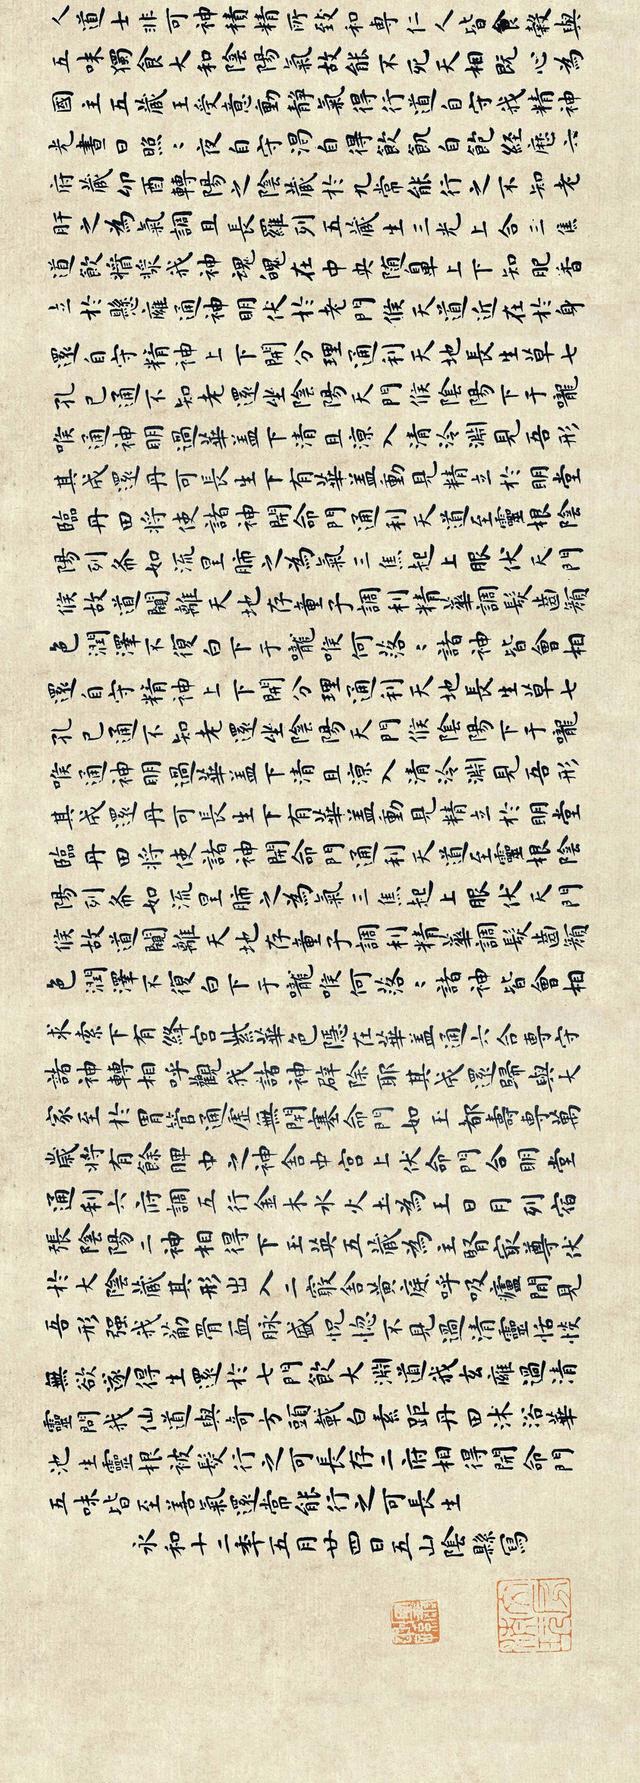 人道士非可神積精所致和專仁人皆食穀與
五味獨食大和陰陽氣故能不死天相既心為
國主五藏王受意動靜氣得行道自守我精神
光晝日照〻夜自守渴自得飲飢自飽經歷六
府藏卯酉轉陽之陰藏於九常能行之不知老
肝之為氣調且長羅列五藏生三光上合三焦
道飲醬漿我神魂魄在中央随鼻上下知肥香
立於懸癰通神明伏於老門候天道近在於身
還自守精神上下開分理通利天地長生草七
孔已通不知老還坐陰陽天門候陰陽下于嚨
喉通神明過華盖下清且涼入清泠淵見吾形
其成還丹可長生下有華盖動見精立於明堂
臨丹田将使諸神開命門通利天道至靈根陰
陽列布如流星肺之為氣三焦起上服伏天門
候故道闚離天地存童子調利精華調髮齒顏
色潤澤不復白下于嚨喉何落〻諸神皆會相
還自守精神上下開分理通利天地長生草七
孔已通不知老還坐陰陽天門候陰陽下于嚨
喉通神明過華盖下清且涼入清泠淵見吾形
其成還丹可長生下有華盖動見精立於明堂
臨丹田将使諸神開命門通利天道至靈根陰
陽列布如流星肺之為氣三焦起上服伏天門
候故道闚離天地存童子調利精華調髮齒顏
色潤澤不復白下于嚨喉何落〻諸神皆會相
求索下有絳宮紫華色隱在華盖通六合專守
諸神轉相呼觀我諸神辟除耶其成還歸與大
家至於胃管通虛無閉塞命門如玉都壽專萬
歲将有餘脾中之神舍中宮上伏命門合明堂
通利六府調五行金木水火土為王日月列宿
張陰陽二神相得下玉英五藏為主腎最尊伏
於大陰藏其形出入二竅舍黃庭呼吸廬間見
吾形强我筋骨血脉盛怳惚不見過清靈恬惔
無欲遂得生還於七門飲大淵道我玄癰過清
靈問我仙道與奇方頭載白素距丹田沐浴華
池生靈根被髮行之可長存二府相得開命門
五味皆至善氣還常能行之可長生
永和十二年五月廿四日五山陰縣寫